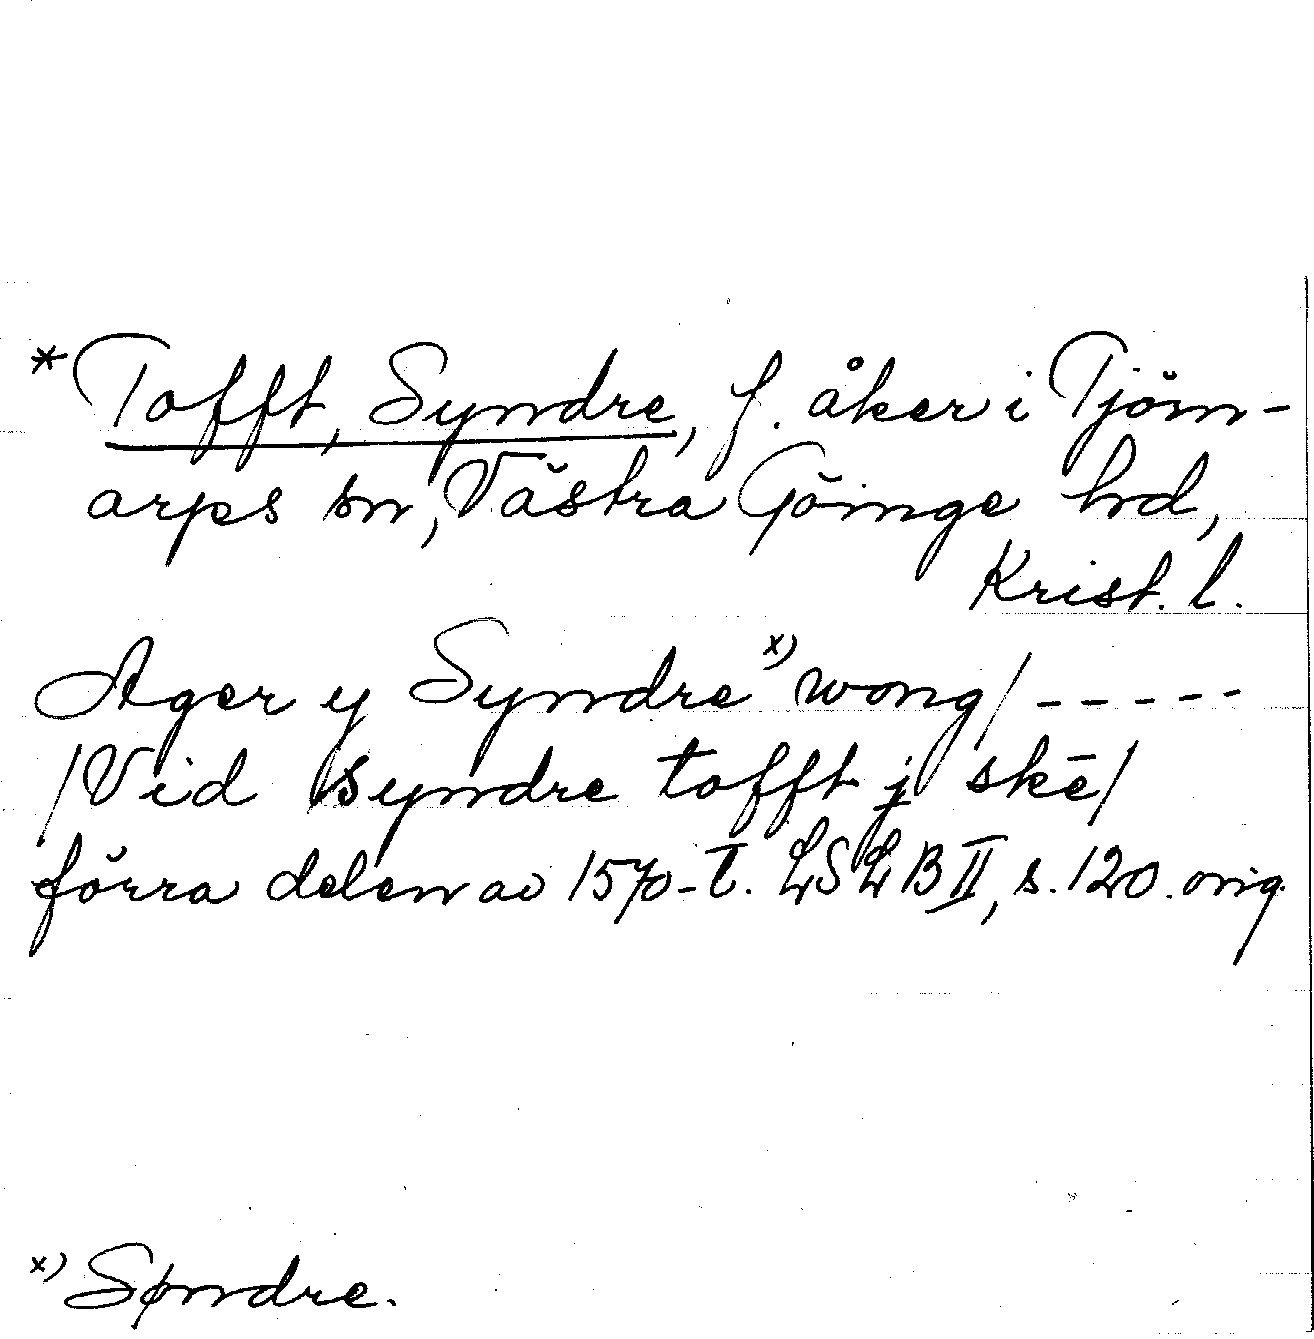 *Tofft, Syndre, f. åker i Tjörn-
arps sn, Västra Göinge hd,
Krist. l.
Ager y Syndre x) wong/ - - - - -
/Vid syndre tofft j skē/
förra delen av 1570-t. LSLB II, s. 120. orig.
x) Søndre.